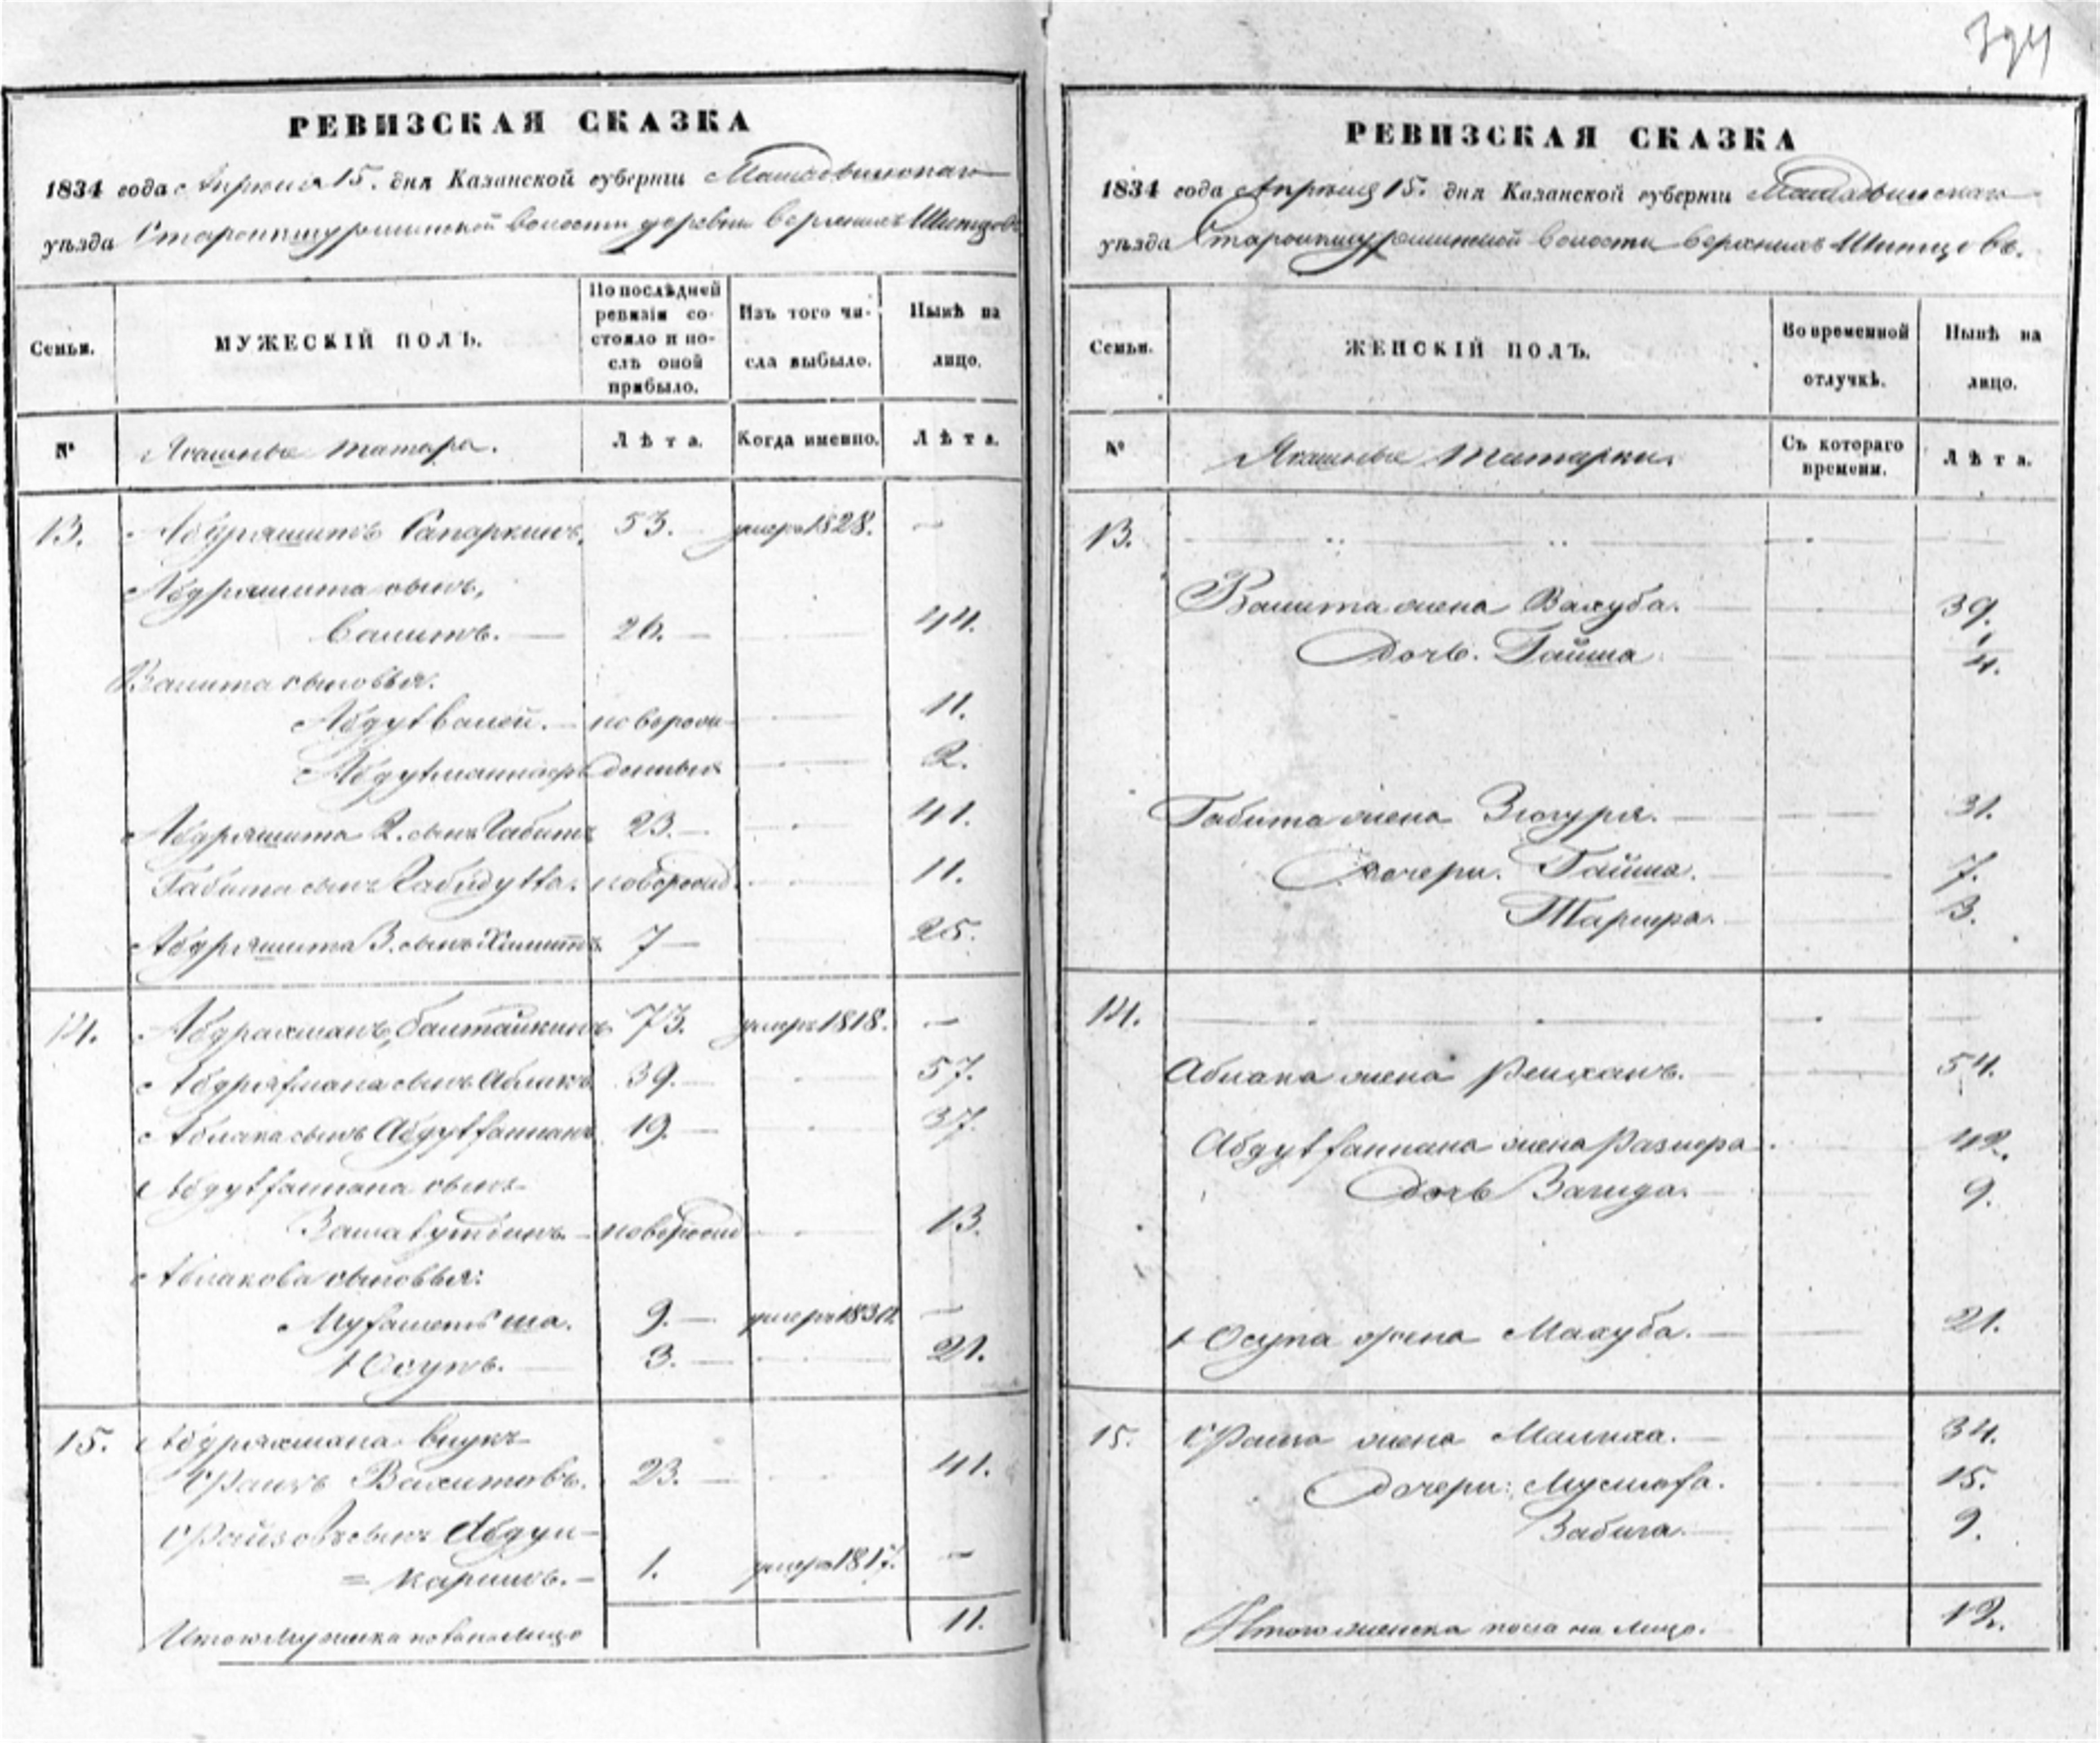 394
РЕВИЗСКАЯ СКАЗКА
1834 года Апреля 15. дня Казанской губернии Мамадышскаго
уѣзда Староикшурминской волости деревни Верхнихъ Шитцовъ
Семьи.
МУЖЕСКІЙ ПОЛЪ.
По послѣдней ревизіи состояло и послѣ оной прибыло.
Изъ того числа выбыло.
Нынѣ на лицо.
№
Ясашные татара.
Лѣта.
Когда именно.
Лѣта.
13. Абдряшитъ Сапаркинъ. 53. умеръ 1828. —
Абдряшита сынъ,
Валитъ. — 26. — 44.
Валита сыновья.
Абдулвалей. — новорож- 11.
денные 2.
Абдряшита 2. сынъ Габитъ 23. — 41.
Габита сынъ Габидулла. новорожд. 11.
Абдряшита 3. сынъ 7 — 25.
14. Абдрахманъ Балтайкинъ 73. умеръ 1818. —
Абдряхмана сынъ Аблакъ 39. — 57.
Аблака сынъ Абдулханнанъ 19. — 37.
Абдулханнана сынъ
новорожд 13.
Аблакова сыновья:
Мухаметъ ша. 9. — умеръ —
Юсупъ. — 3. — 21.
15. Абдряхмана внукъ
Фаизъ Вахитовъ. 23. — 41.
Файзовъ сынъ Абдул-
= каримъ. — 1. умеръ 1817. —
Итого мужеска пола на лицо 11.
РЕВИЗСКАЯ СКАЗКА
1834 года Апреля 15. дня Казанской губернии Мамадышскаго
уѣзда Староикшурминской волости Верхнихъ Шитцовъ.
Семьи.
ЖЕНСКІЙ ПОЛЪ.
Во временной отлучкѣ.
Нынѣ на лицо.
№
Ясашные татарки.
Съ котораго времени.
Лѣта.
13.
Валита жена Вахуба. 39.
Дочь. Гайша 1/4.
Габита жена Зюгуря. 31.
Дочери. Гайша. 7.
3.
14.
Аблака жена Рейханъ. 54.
Абдулханнана жена 42.
Дочь Вагида. 9.
Юсупа жена Махуба. 21.
15. Фаиза жена Малиха. 34.
Дочери: 15.
Забига. 9.
Итого женска пола на лицо. 12.